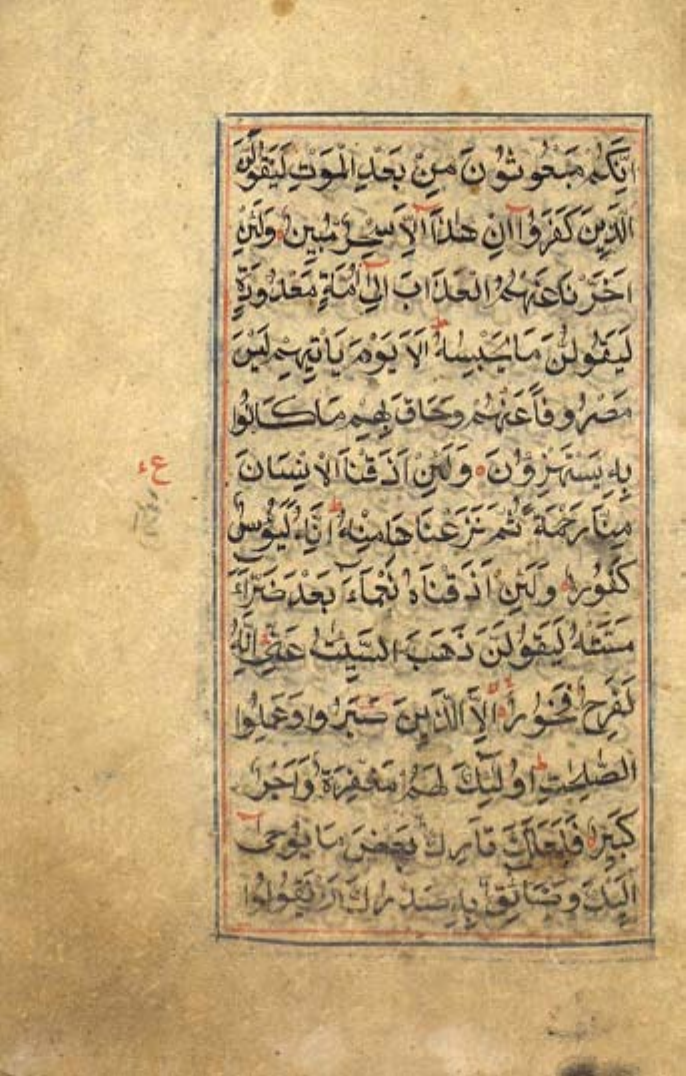 اِنَّكُمْ مَبْعُوثُونَ مِنْ بَعْدِ الْمَوْتِ لَيَقُولَنَّ
الَّذِينَ كَفَرُوا اِنْ هٰذَا اِلَّا سِحْرٌ مُبِينٌ وَلَئِنْ
اَخَّرْنَا عَنْهُمُ الْعَذَابَ اِلٰى اُمَّةٍ مَعْدُودَةٍ
لَيَقُولُنَّ مَا يَحْبِسُهُ اَلَا يَوْمَ يَاْتِيهِمْ لَيْسَ
مَصْرُوفًا عَنْهُمْ وَحَاقَ بِهِمْ مَا كَانُوا
بِهِ يَسْتَهْزِؤُنَ وَلَئِنْ اَذَقْنَا الْاِنْسَانَ
مِنَّا رَحْمَةً ثُمَّ نَزَعْنَاهَا مِنْهُ اِنَّهُ لَيَؤُسٌ
كَفُورٌ وَلَئِنْ اَذَقْنَاهُ نَعْمَاءَ بَعْدَ ضَرَّاءَ
مَسَّتْهُ لَيَقُولَنَّ ذَهَبَ السَّيِّئَاتُ عَنِّى اِنَّهُ
لَفَرِحٌ فَخُورٌ اِلَّا الَّذِينَ صَبَرُوا وَعَمِلُوا
الصّٰلِحٰتِ اُولٰئِكَ لَهُمْ مَغْفِرَةٌ وَاَجْرٌ
كَبِيرٌ فَلَعَلَّكَ تَارِكٌ بَعْضَ مَا يُوحٰى
اِلَيْكَ وَضَائِقٌ بِهِ صَدْرُكَ اَنْ يَقُولُوا
ع